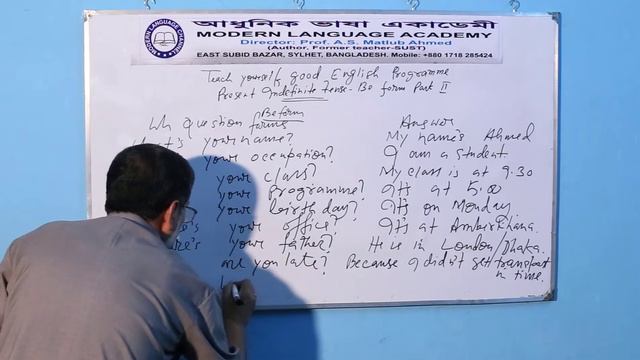 আধুনিক ভাষা একাডেমী
MODERN LANGUAGE ACADEMY
Director: Prof. A.S. Matlub Ahmed
(Author, Former teacher-SUST)
EAST SUBID BAZAR, SYLHET, BANGLADESH. Mobile: +880 1718 285424
Teach yourself good English Programme
Present Indefinite tense - Be form Part II
Be form
Wh question forms Answer
your name? My name's Ahmed
your occupation? I am a student.
your class? My class is at 9.30
your Programme? It's at 5.00
your birth day? It's on Monday
your office? It's at AmbarKhana.
your father? He is in London/Dhaka.
are you late? Because I didn't get transport
in time.